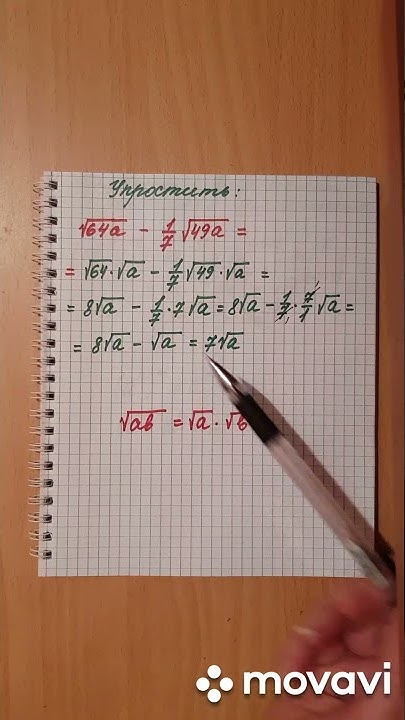 Упростить:
√64a - 1/7 √49a =
= √64·√a - 1/7 √49·√a =
= 8√a - 1/7·7√a = 8√a - 1/7·7/1 √a =
= 8√a - √a = 7√a
√ab = √a·√b
movavi